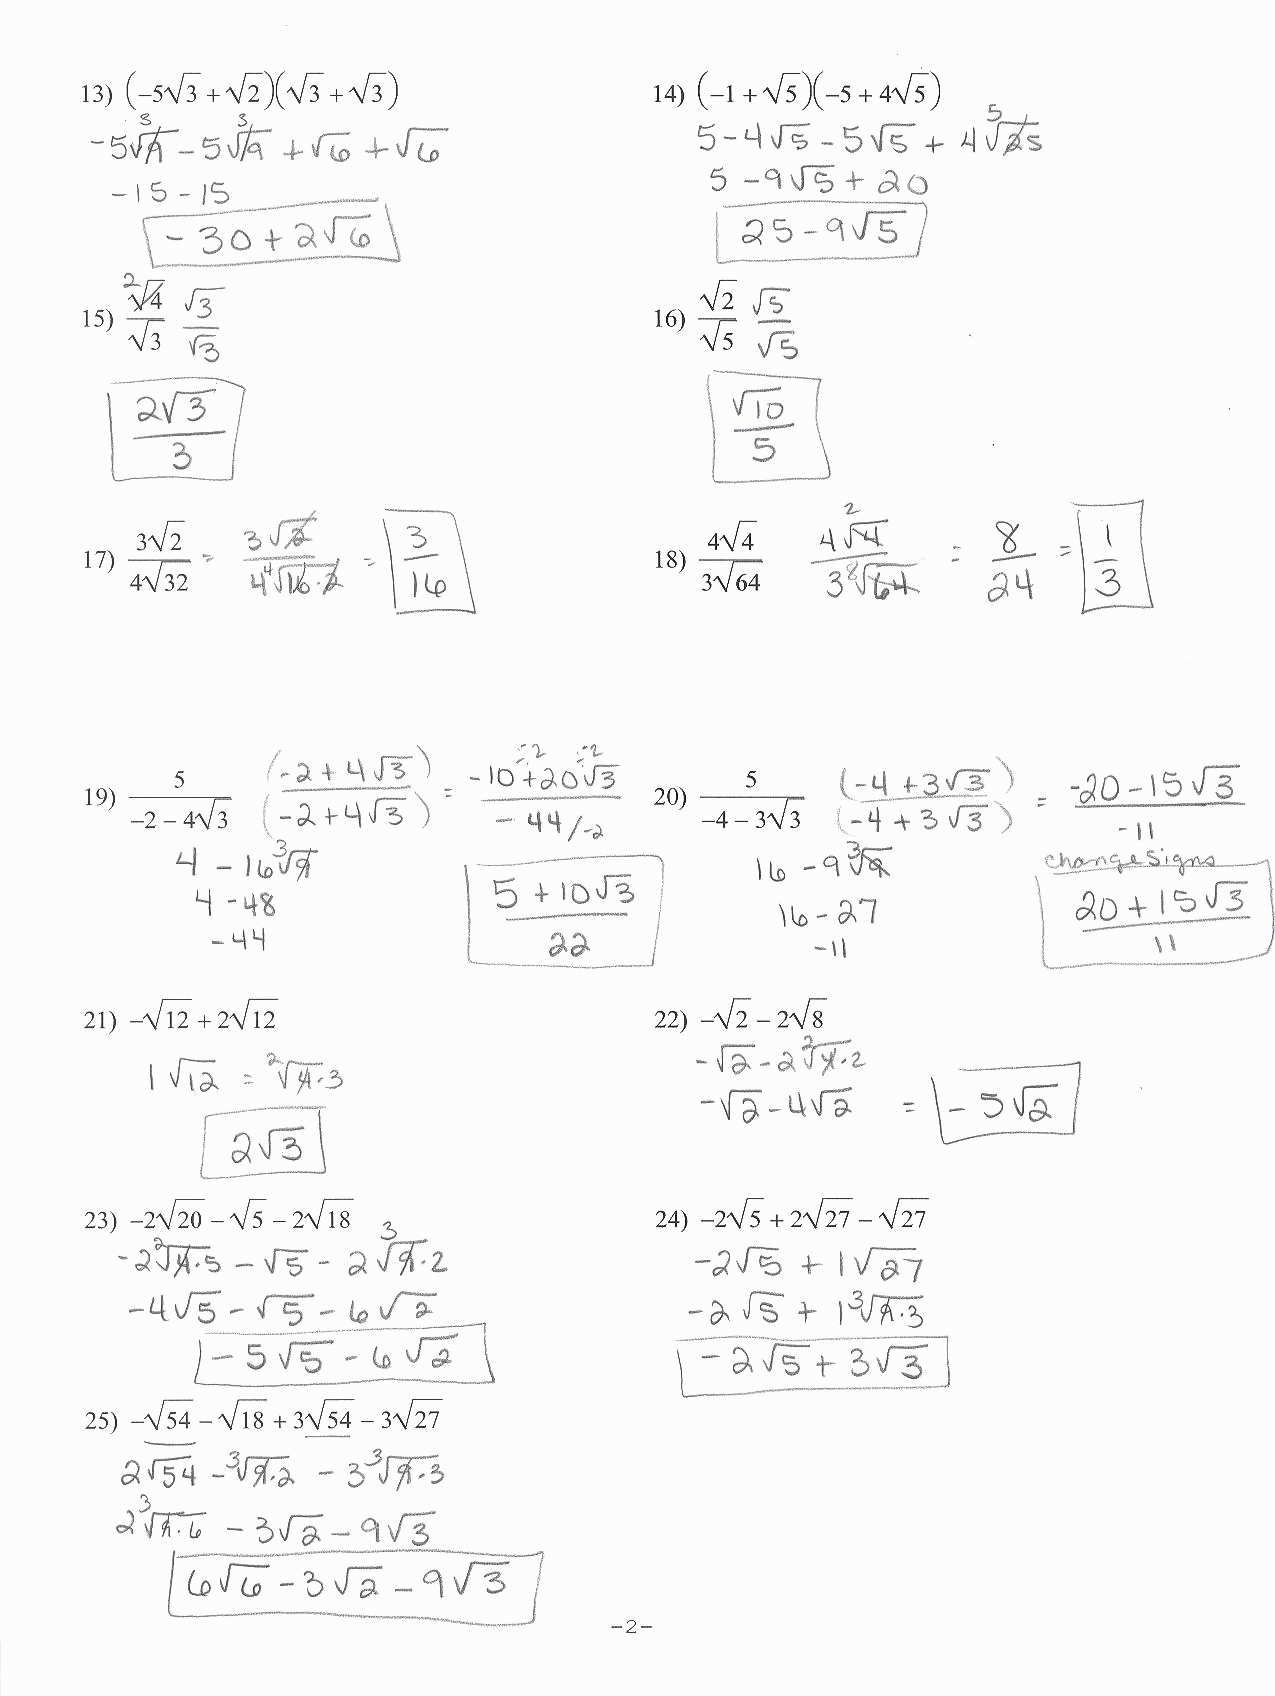 13) (−5√3 + √2)(√3 + √3)
-5√9 - 5√9 + √6 + √6
3 3
-15 - 15
-30 + 2√6
14) (−1 + √5)(−5 + 4√5)
5 - 4√5 - 5√5 + 4√25
5
5 - 9√5 + 20
25 - 9√5
15) √4/√3 √3/√3
2
2√3/3
16) √2/√5 √5/√5
√10/5
17) 3√2/4√32 = 3√2/4√16·2 = 3/16
4
18) 4√4/3√64 4√4/3√64 = 8/24 = 1/3
2
8
19) 5/(−2 − 4√3) (-2 + 4√3)/(-2 + 4√3) = -10 + 20√3/-44/-2
÷-2 ÷-2
4 - 16√9
3
4 - 48
-44
5 + 10√3/22
20) 5/(−4 − 3√3) (-4 + 3√3)/(-4 + 3√3) = -20 - 15√3/-11
16 - 9√9
3
16 - 27
-11
change signs
20 + 15√3/11
21) −√12 + 2√12
1√12 = 2√4·3
2√3
22) −√2 − 2√8
-√2 - 2 2√4·2
-√2 - 4√2 = -5√2
23) −2√20 − √5 − 2√18
-2 2√4·5 - √5 - 2 3√9·2
-4√5 - √5 - 6√2
-5√5 - 6√2
24) −2√5 + 2√27 − √27
-2√5 + 1√27
-2√5 + 1 3√9·3
-2√5 + 3√3
25) −√54 − √18 + 3√54 − 3√27
2√54 - 3√9·2 - 3 3√9·3
2 3√9·6 - 3√2 - 9√3
6√6 - 3√2 - 9√3
-2-